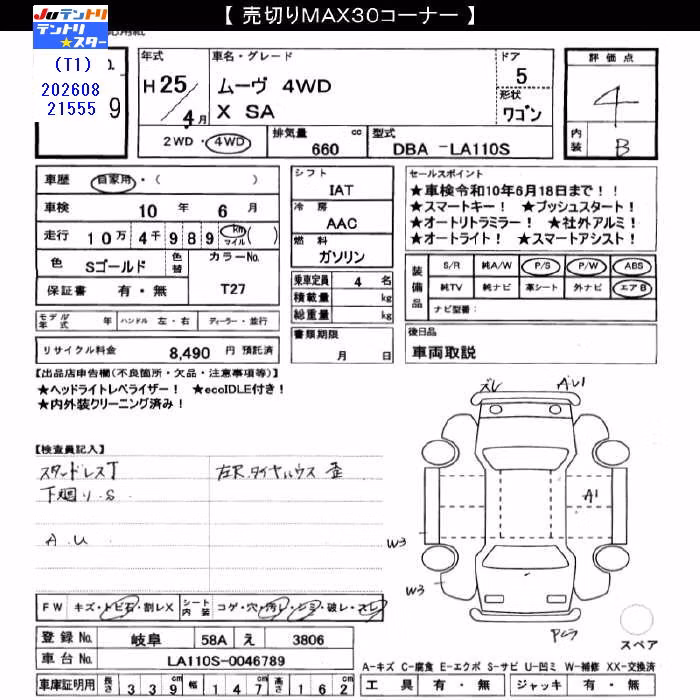 【 売切りMAX30コーナー 】
JUテントリ
テントリ
★スター
(T1)
202608
21555
9
年式
H 25/4月
車名・グレード
ムーヴ 4WD
X SA
ドア
5
形状
ワゴン
評価点
4
内装
B
2WD・4WD
排気量 cc
660
型式
DBA -LA110S
車歴 自家用・( )
車検 10 年 6 月
走行 10万 4千 9 8 9 km マイル ( )
色 Sゴールド 色替 カラーNo.
保証書 有・無 T27
モデル年式 年 ハンドル 左・右 ディーラー・並行
リサイクル料金 8,490 円 預託済
シフト
IAT
冷房
AAC
燃料
ガソリン
乗車定員 4 名
積載量 kg
総重量 kg
書類期限
月 日
セールスポイント
★車検令和10年6月18日まで！！
★スマートキー！ ★プッシュスタート！
★オートリトラミラー！ ★社外アルミ！
★オートライト！ ★スマートアシスト！
装備品
S/R 純A/W P/S P/W ABS
純TV 純ナビ 革シート 外ナビ エアB
ナビ型番:
後日品
車両取説
【出品店申告欄(不良箇所・欠品・注意事項等)】
★ヘッドライトレベライザー！ ★ecoIDLE付き！
★内外装クリーニング済み！
【検査員記入】
スタッドレスT
下廻り.S
A.U
左R.タイヤハウス 歪
ズレ
A1
A1
W3
W3
FW キズ・トビ石・割レX シート内装 コゲ・穴・汚レ・シミ・破レ・スレ
登録No. 岐阜 58A え 3806
車台No. LA110S-0046789
車庫証明用 長さ 3 3 9 cm 幅 1 4 7 cm 高さ 1 6 2 cm
スペア
A-キズ C-腐食 E-エクボ S-サビ U-凹ミ W-補修 XX-交換済
工具 有・無 ジャッキ 有・無